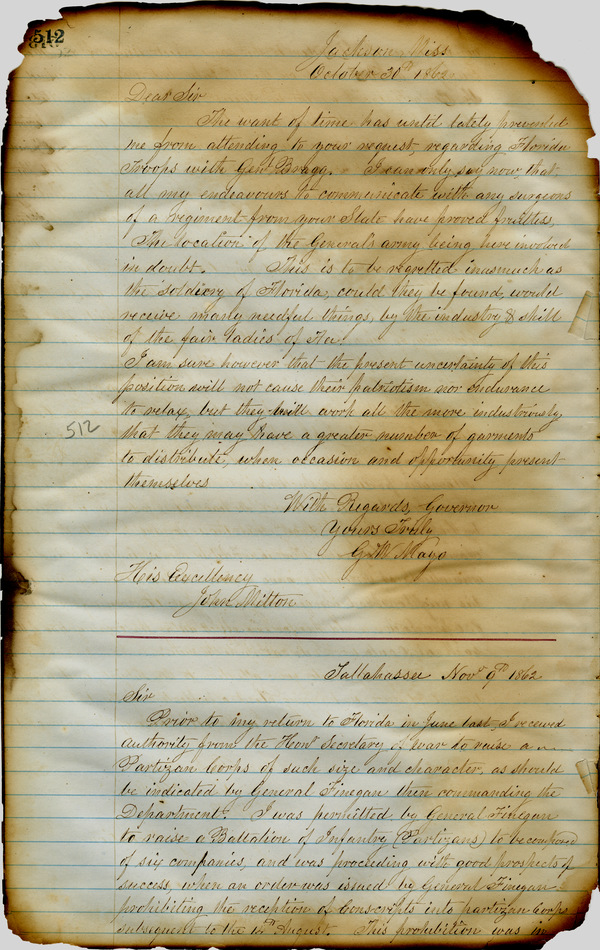 512
Jackson Miss
October 30th 1862
Dear Sir
The want of time has until lately prevented
me from attending to your request, regarding Florida
Troops with Genl Bragg. I can only say now that,
all my endeavours to communicate with any surgeons
of a regiment from your State have proved fruitless
The location of the General's army being here involved
in doubt. This is to be regretted inasmuch as
the soldiery of Florida, could they be found, would
receive many needful things, by the industry & skill
of the fair ladies of
I am sure however that the present uncertainty of this
position will not cause their patriotism nor endurance
to relax, but they will work all the more industriously
512
that they may have a greater number of garments
to distribute, when occasion and opportunity present
themselves
With Regards, Governor
Yours Truly
G W Mayo
His Excellency
John Milton
Tallahassee Novr 9th 1862
Sir
Prior to my return to Florida in June last, I received
authority from the Honl Secretary of War to raise a
Partizan Corps of such size and character, as should
be indicated by General Finegan then commanding the
Department. I was permitted by General Finegan
to raise a Battalion of Infantry (Partizans) to be composed
of six companies, and was proceeding with good prospects of
success, when an order was issued by General Finegan
prohibiting the reception of Conscripts into partizan Corps
subsequent to the 12th August. This prohibition was in